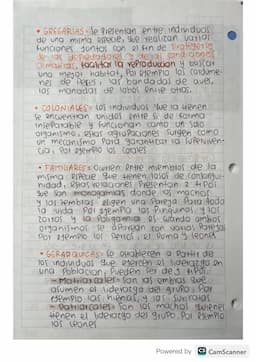 • GREGARIAS: Se Presentan entre individuos
de una misma especie, que realizan varias
funciones juntos con el fin de protegerse
de los depredadores y de las condiciones
climaticas, facilitar la reproduccion y buscar
una mejor habitat, Por ejemplo los cardume-
nes de Peces, las bandadas de aves,
las manadas de lobos entre otros.
• COLONIALES: los individuos que la tienen
se encuentran unidos entre si de forma
inseparable y funcionan como un solo
organismo, estas agrupaciones surgen como
un mecanismo Para garantizar la superviven-
cia, Por ejemplo los corales
• FAMILIARES: Ocurren entre miembros de la
misma especie que tienen lazos de consangui-
nidad, estas relaciones Presentan 2 tipos
que son monogamias donde los machos
y las hembras eligen una Pareja Para toda
la vida Por ejemplo los Pinguinos y los
zorros y la Poligamia es cuando ambos
organismos se aparean con varias Parejas
Por ejemplo los Perros, el Puma y leones
• GERARQUICAS: se establecen a Partir de
los individuos que ejercen el liderazgo en
una Poblacion, Pueden ser de 2 tipos:
- Matriarcales: son las hembras que
asumen el liderazgo del grupo. Por
ejemplo las hienas, y las suricatas
- Patriarcales: son los machos quienes
tienen el liderazgo del grupo. Por ejemplo
los leones
Powered by CamScanner